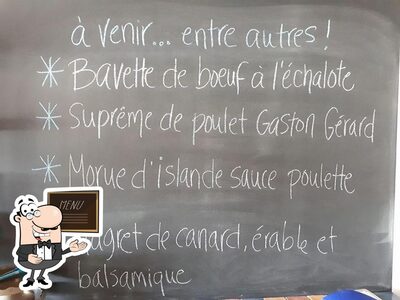 à venir... entre autres !
* Bavette de boeuf à l'échalote
* Suprême de poulet Gaston Gérard
* Morue d'islande sauce poulette
de canard, érable et
balsamique
MENU